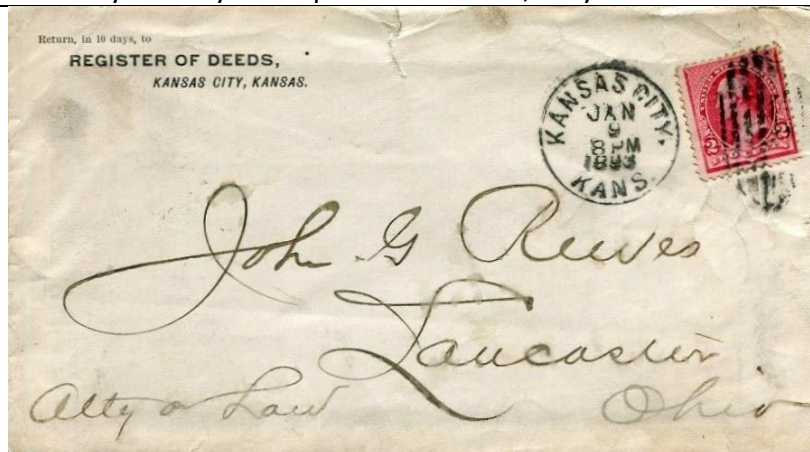 Return, in 10 days, to
REGISTER OF DEEDS,
KANSAS CITY, KANSAS.
KANSAS CITY.
JAN
9
8 PM
1893
KANS.
2 2
John G Reeves
Lancaster
Atty a Law
Ohio